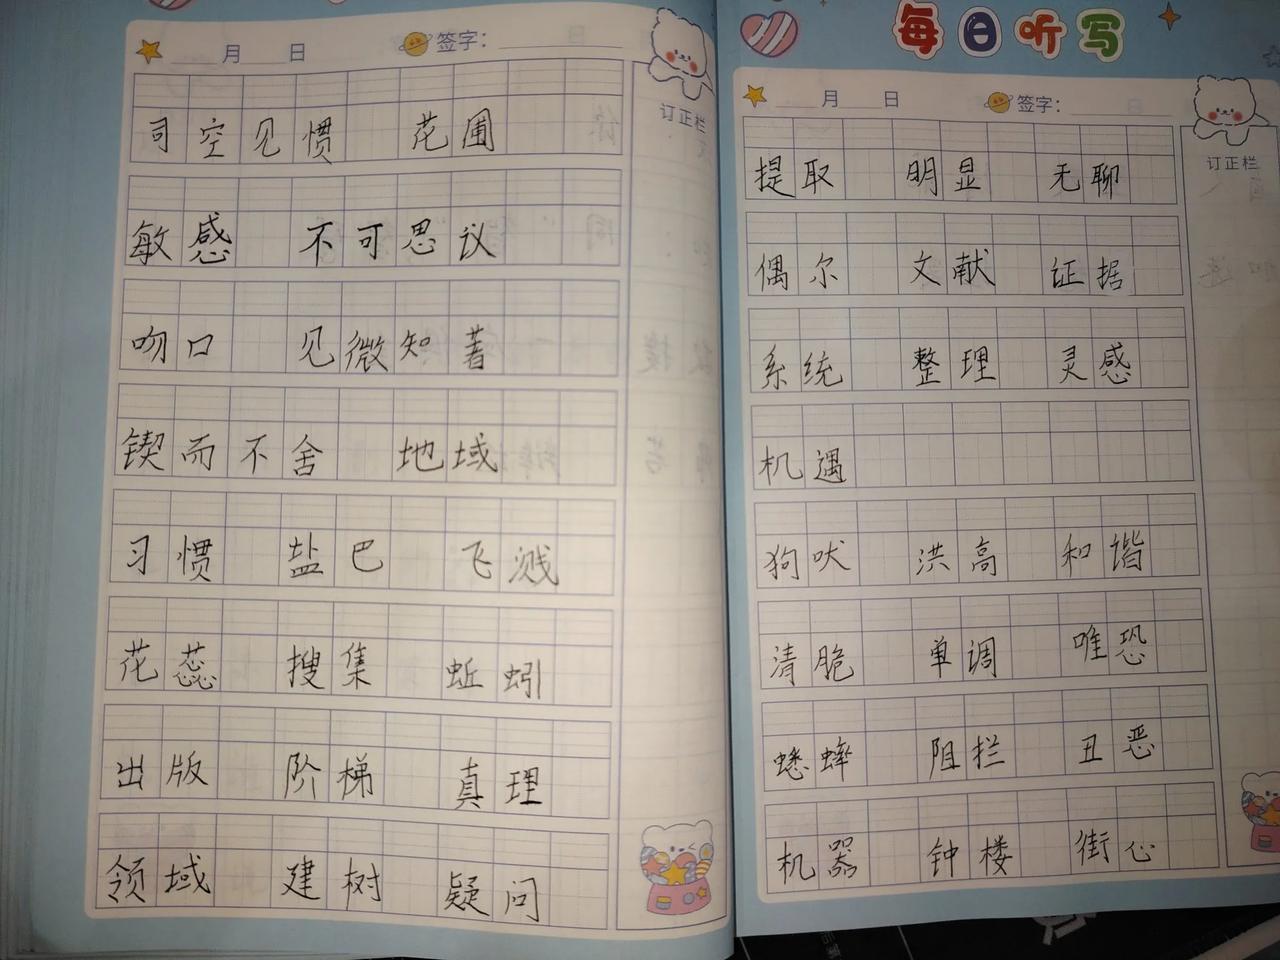 月 日 签字:
订正栏
司空见惯 花圃
敏感 不可思议
吻口 见微知著
锲而不舍 地域
习惯 盐巴 飞溅
花蕊 搜集 蚯蚓
出版 阶梯 真理
领域 建树 疑问
每日听写
月 日 签字:
订正栏
提取 明显 无聊
偶尔 文献 证据
系统 整理 灵感
机遇
狗吠 洪高 和谐
清脆 单调 唯恐
蟋蟀 阻拦 丑恶
机器 钟楼 街心